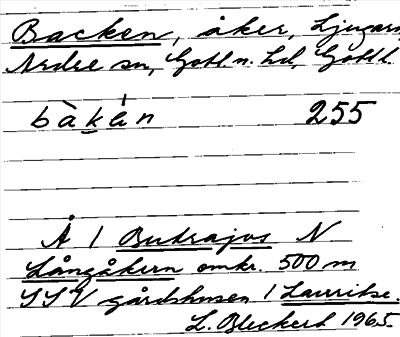 Backen, åker, Ljugarn,
Ardre sn, Gotl. n. hd, Gotl. l.
bàkèn 255
Å / Butrajvs N
Långåkern omkr. 500 m
SSV gårdshusen / Lauritse.
L. Bleckert 1965.